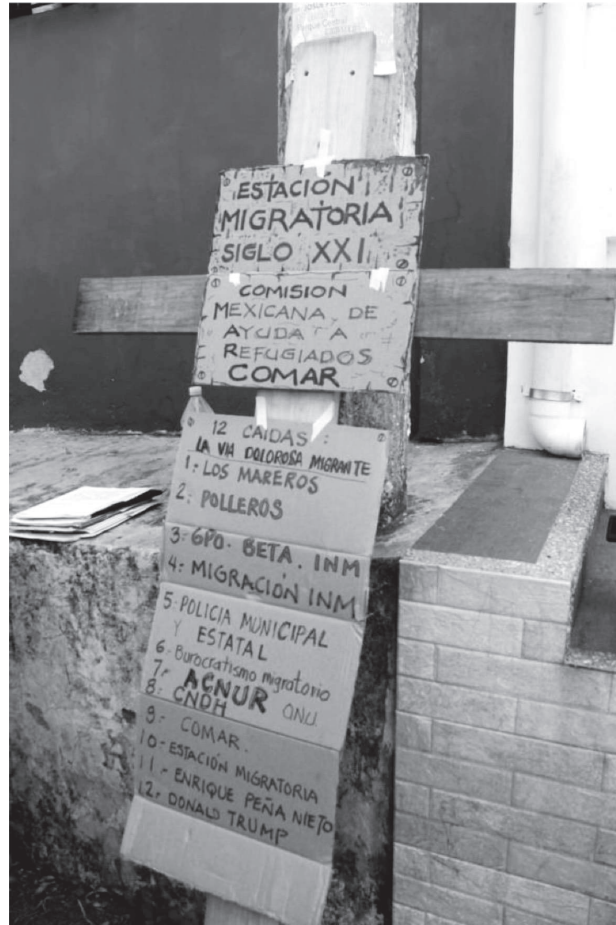 Parque Central
ESTACIÓN
MIGRATORIA
SIGLO XXI
COMISION
MEXICANA DE
AYUDA A
REFUGIADOS
COMAR
12 CAIDAS:
LA VIA DOLOROSA MIGRANTE
1.- LOS MAREROS
2.- POLLEROS
3.- GPO. BETA. INM
4.- MIGRACIÓN INM
5.- POLICIA MUNICIPAL
Y ESTATAL
6.- Burocratismo migratorio
7.- ACNUR ONU
8.- CNDH
9.- COMAR.
10.- ESTACIÓN MIGRATORIA
11.- ENRIQUE PEÑA NIETO
12.- DONALD TRUMP